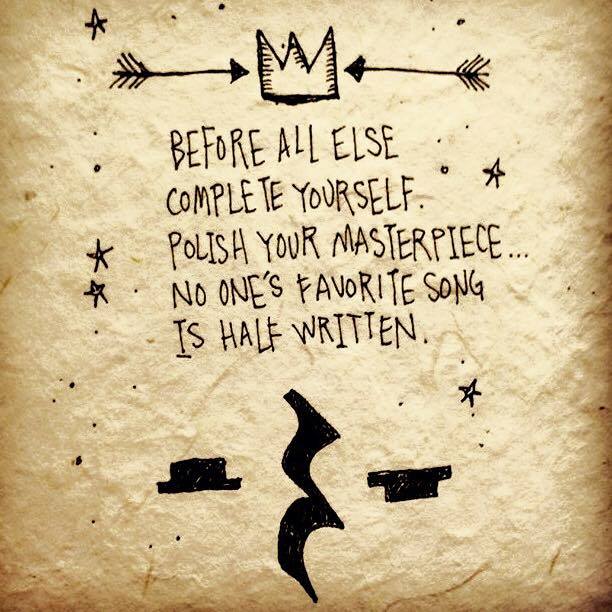 BEFORE ALL ELSE
COMPLETE YOURSELF.
POLISH YOUR MASTERPIECE...
NO ONE'S FAVORITE SONG
IS HALF WRITTEN.